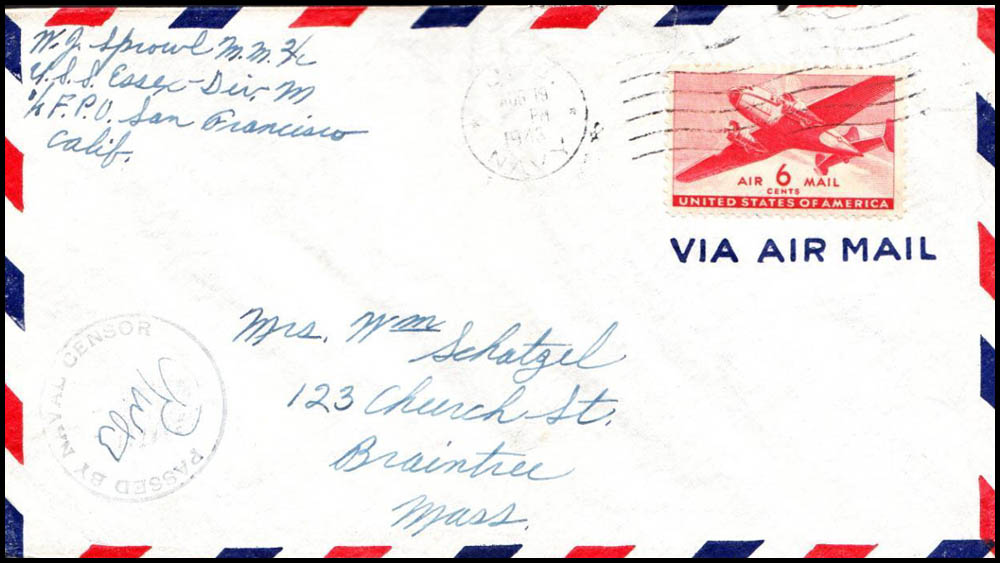 W. J. Sprowl M.M. 2/c
U.S.S. Essex - Div. M
c/o F.P.O. San Francisco
Calif.
AUG 19
PM
1943
AIR 6 MAIL
CENTS
UNITED STATES OF AMERICA
VIA AIR MAIL
Mrs. Wm Schatzel
123 Church St.
Braintree
Mass.
PASSED BY NAVAL CENSOR